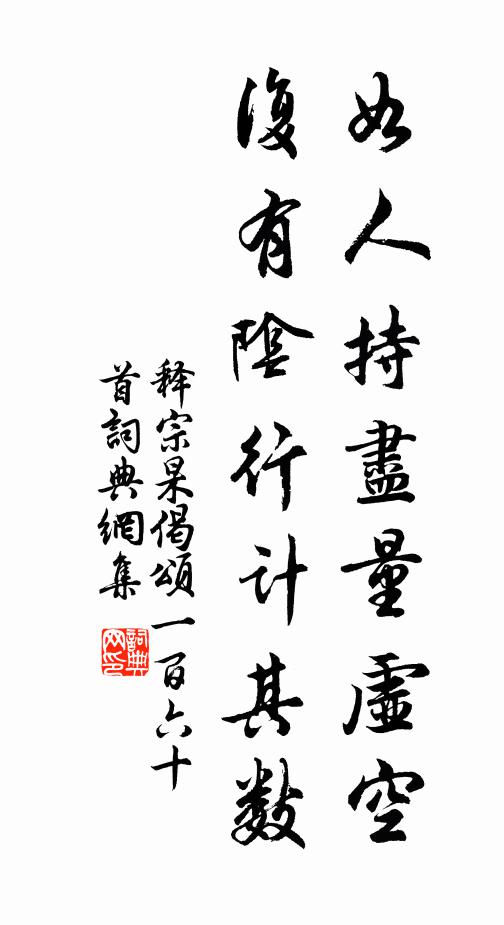 如人持盡量虛空
復有陰行計其數
释宗杲偈頌一百六十
首詞典網集
詞典网印